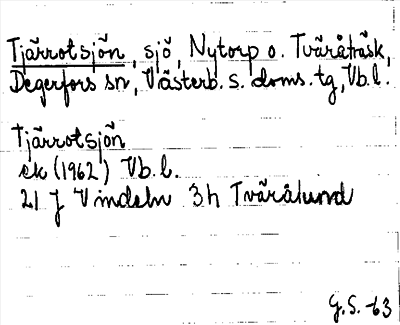 Tjärrotsjön, sjö, Nytorp o. Tväråträsk,
Degerfors sn, Västerb. s. doms. tg, Vb. l.
Tjärrotsjön
ek (1962) Vb. l.
21 J Vindeln 3h Tvärålund
G.S. -63